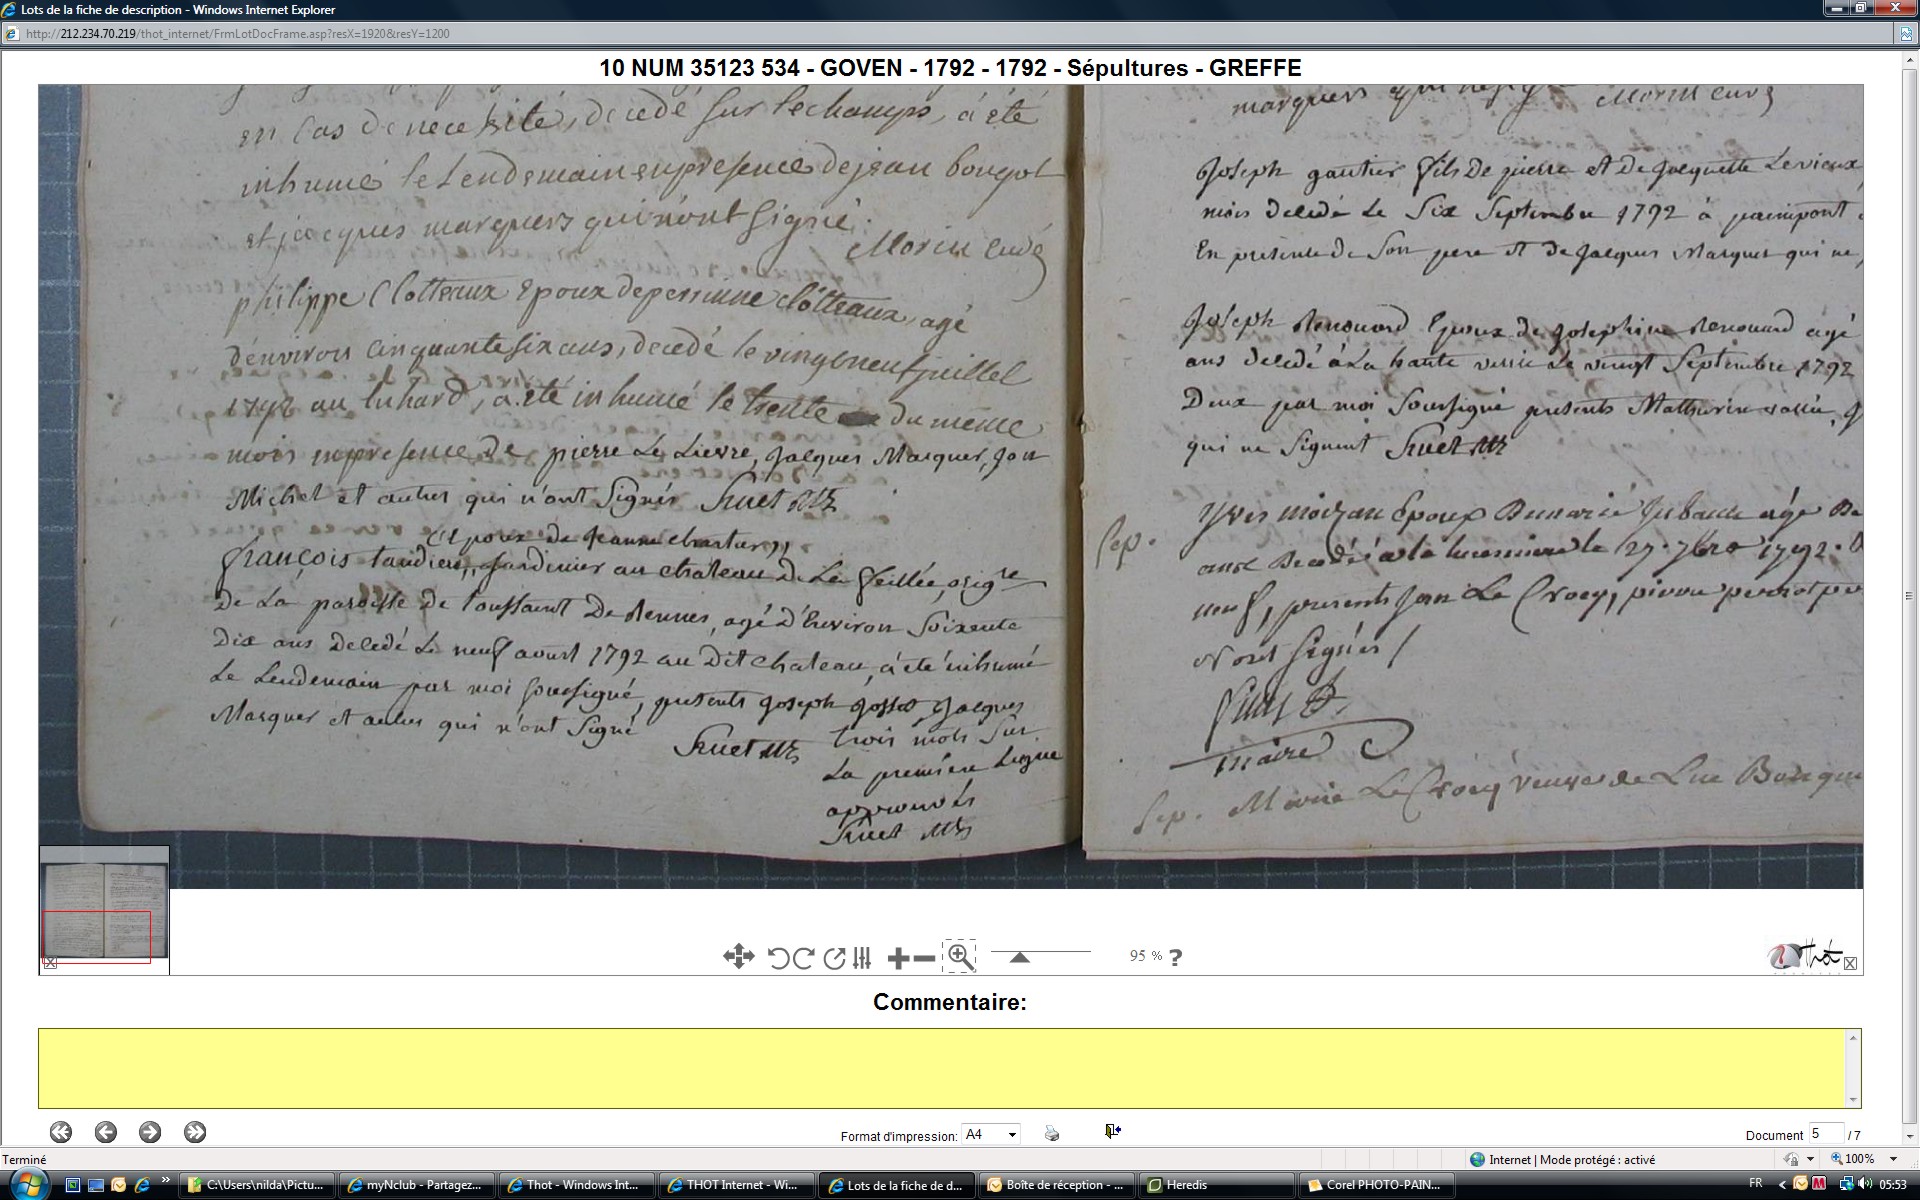 Lots de la fiche de description - Windows Internet Explorer
http://212.234.70.219/thot_internet/FrmLotDocFrame.asp?resX=1920&resY=1200
10 NUM 35123 534 - GOVEN - 1792 - 1792 - Sépultures - GREFFE
en cas de necessité, decedé sur le champs, à été
inhumé le Lendemain en presence de jean bougot
et jacques marquers qui n'ont signé.
Morin curé
philippe Clotteaux Epoux de perrinne Clotteaux, agé
d'environ cinquante six ans, decedé le vingt neuf juillet
1792 au luhard, a été inhumé le trente du même
mois en presence de pierre Le Lievre, Jacques Marquer, Jan
Michel et autres qui n'ont Signés Huet
Epoux de Jeanne chartier,,
françois tardieu,, Jardinier au chateau de La feillée, orig.re
de La paroisse de toussaint De Rennes, agé d'Environ Soixente
Dix ans decedé Le neuf aoust 1792 au Dit chateau, a été inhumé
Le Lendemain par moi soussigné, presents Joseph Jossot Jacques
Marquer et autres qui n'ont Signé
Huet
trois mots sur
La première Ligne
approuvés
Huet
Morin curé
Joseph gautier fils De pierre et De Jacquette Levieux
mois decedé Le Six Septembre 1792 à painpont
En présence de Son pere et de Jacques Marquer qui ne
Joseph Renouard Epoux de Josephine Renouard agé
ans decedé à La haute Le vingt Septembre 1792
Deux par moi Soussigné presents Mathurin
qui ne Signent Huet
Sep.
Yves moizan Epoux De marie agé De
ans Decedé le 27. 7bre 1792.
neuf, presents Jan Le Crocq, perrot
N'ont signés
maire
Sep. Marie Le Crocq veuve de Luc
95 %
Thot
Commentaire:
Format d'impression: A4
Document 5 / 7
Terminé
Internet | Mode protégé : activé
100%
C:\Users\nilda\Pictu...
myNclub - Partagez...
Thot - Windows Int...
THOT Internet - Wi...
Lots de la fiche de d...
Boîte de réception - ...
Heredis
Corel PHOTO-PAIN...
FR
05:53